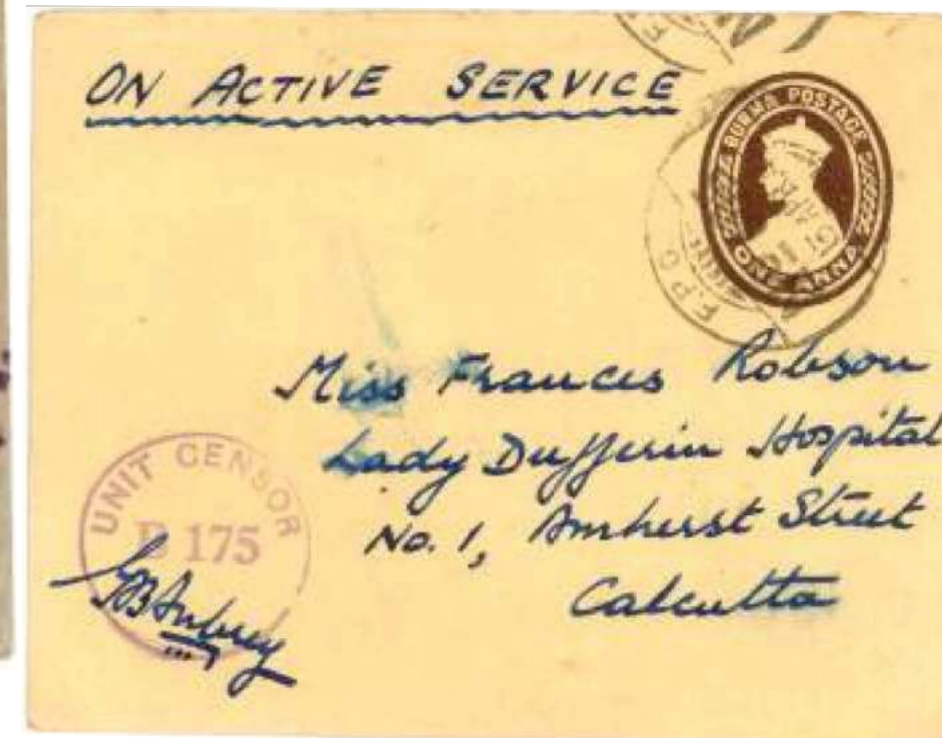 ON ACTIVE SERVICE
BURMA POSTAGE
ONE ANNA
F.P.O.
Miss Frances Robson
Lady Dufferin Hospital
No. 1, Amherst Street
Calcutta
UNIT CENSOR
B 175
Aubrey